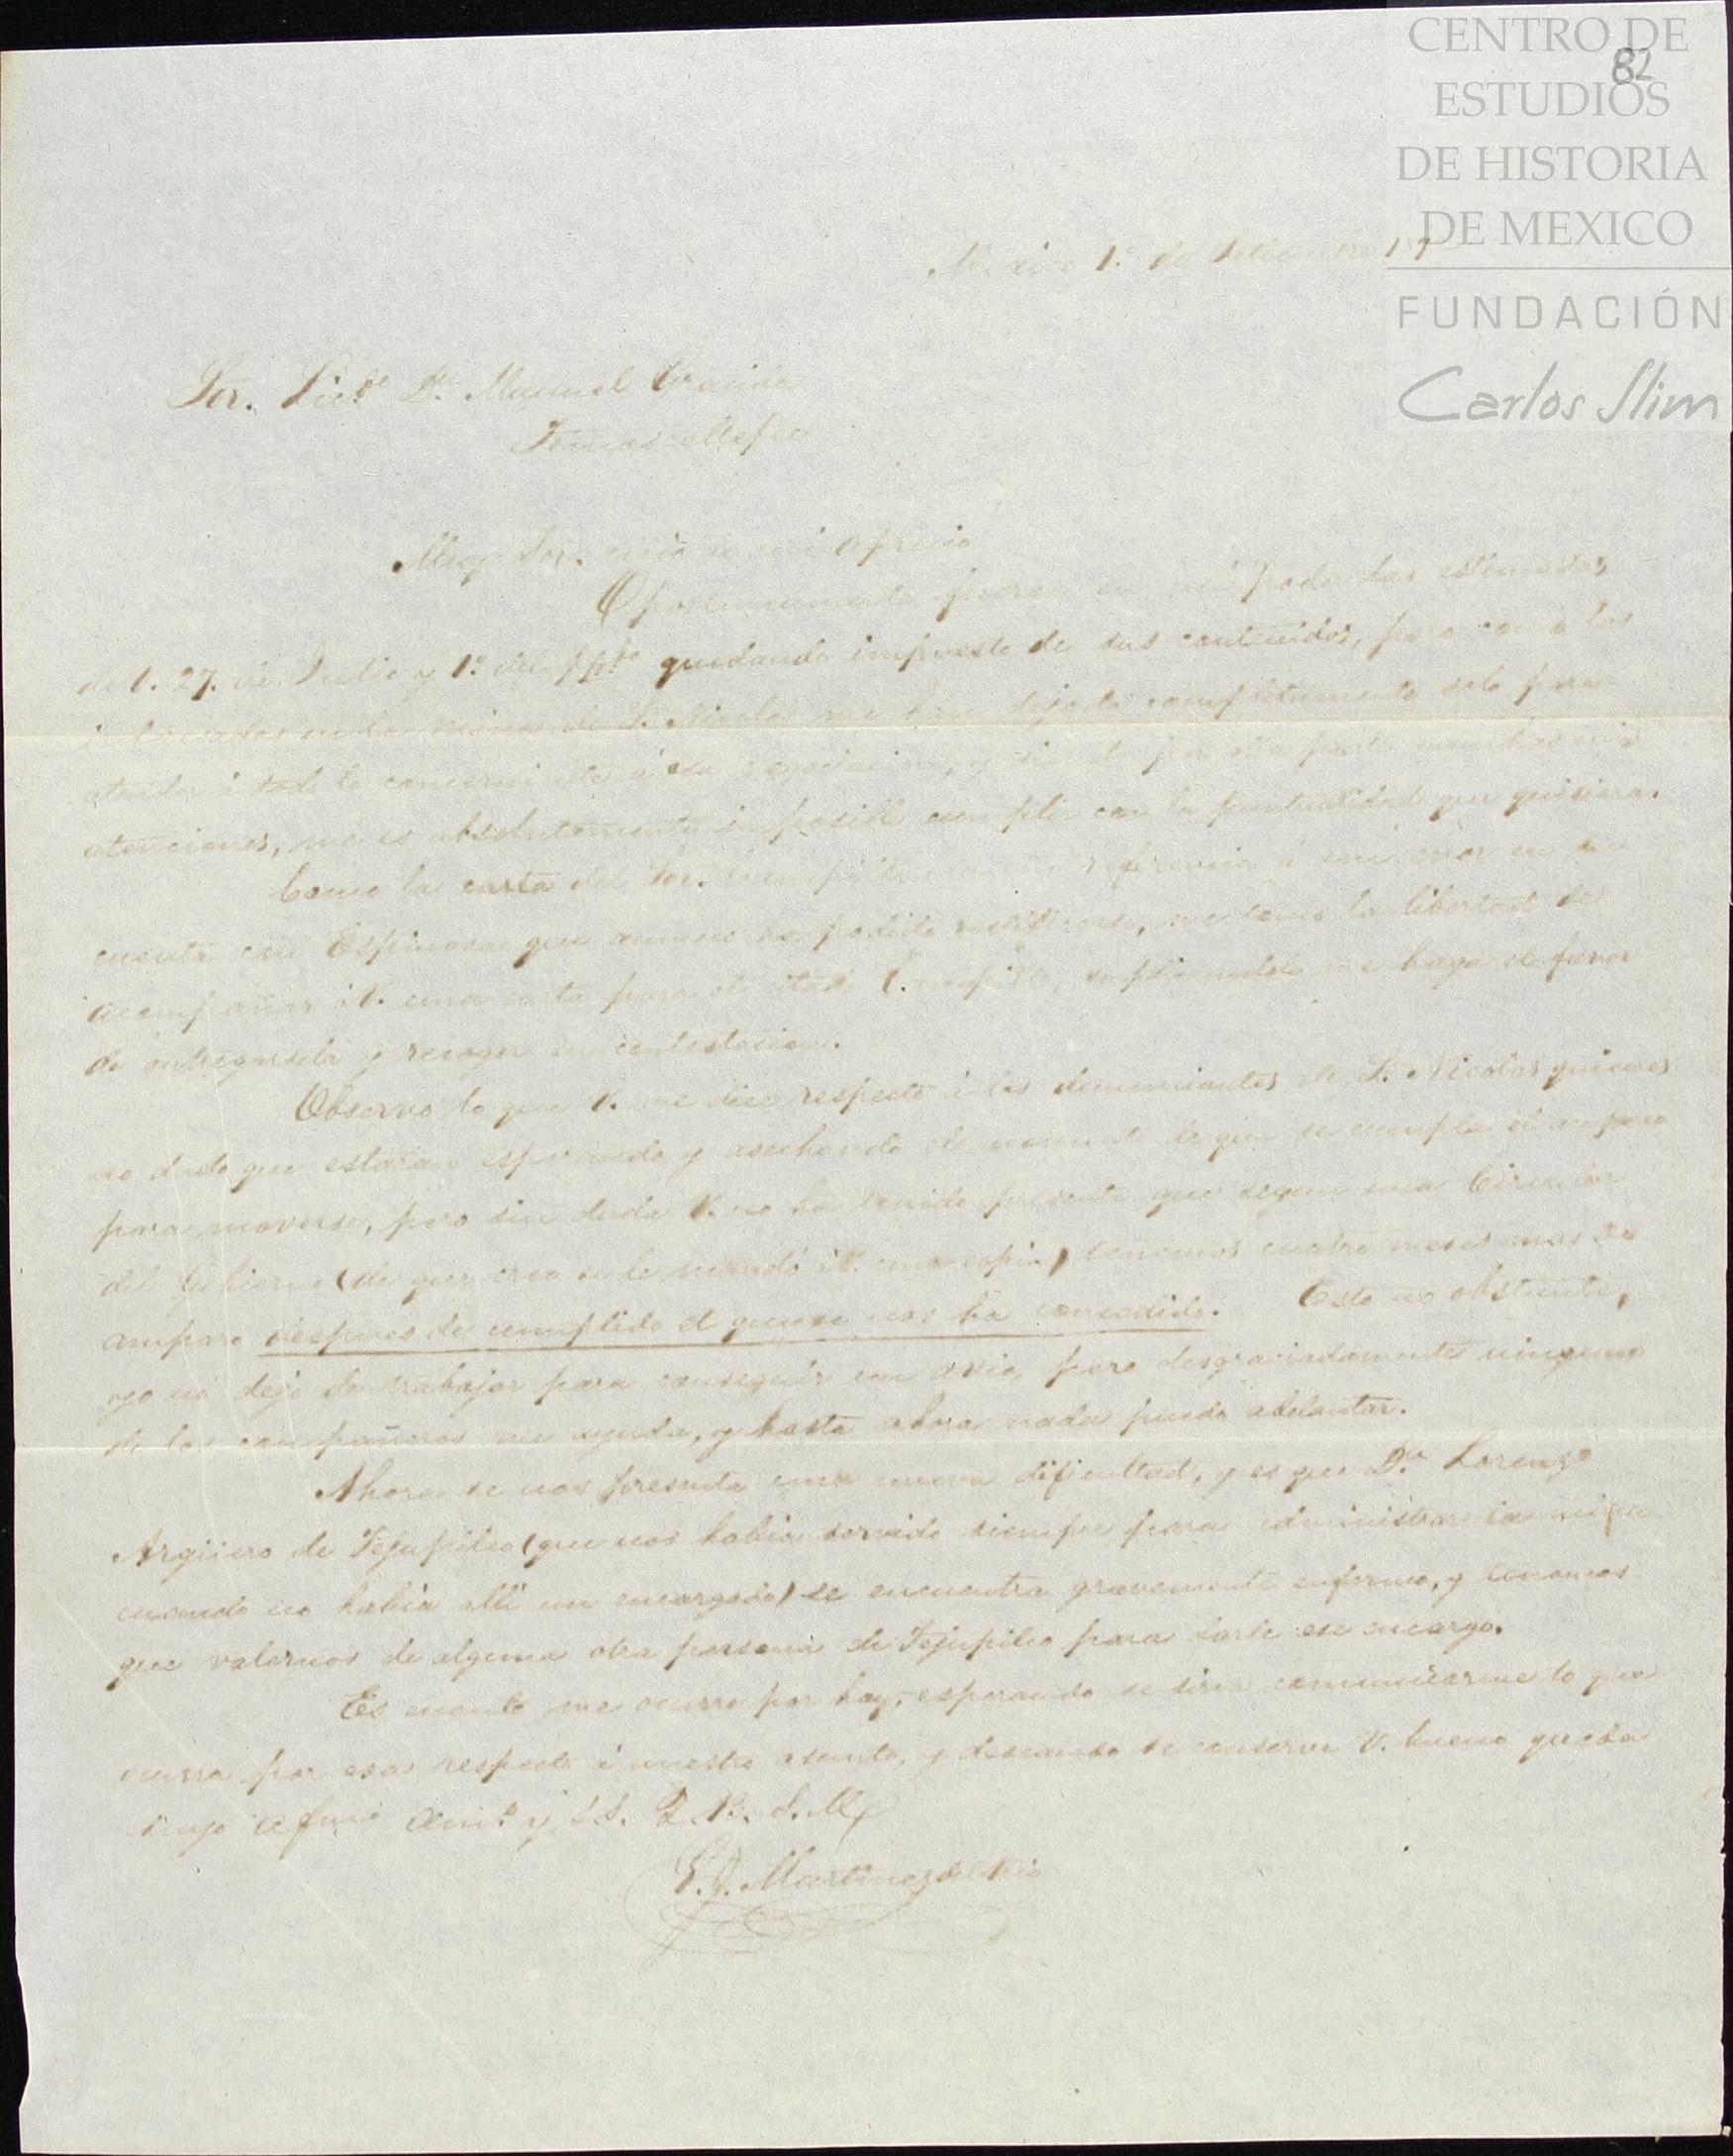 CENTRO DE
82
ESTUDIOS
DE HISTORIA
DE MEXICO
FUNDACIÓN
Carlos Slim
1º de
Sor. Licdo Dn. Manuel
Temascaltepec
Muy Sor. mio de mi aprecio
Oportunamente fueron en mi poder sus estimadas
de V. 27. de Julio y 1º del ppdo quedando impuesto de sus contenidos, pero como los
en la mina de S. Nicolas me han dejado completamente solo para
atender á todo lo concerniente á esa negociacion, y por otra parte muchas mis
atenciones, me es absolutamente imposible cumplir con la puntualidad que quisiera.
Como la carta del Sor. referencia á un error en su
cuenta con Espinosa que aun no ha podido me tomo la libertad de
acompañar á V. una carta para el citado suplicandole me haga el favor
de entregarsela y recoger su contestacion.
Observo lo que V. me dice respecto á los denunciantes de S. Nicolas quienes
no dudo que estaran esperando y asechando el momento de que se cumpla el amparo
para moverse, pero sin duda V. no ha tenido presente que segun una Circular
del Gobierno (de que creo se le mandó á V. una copia) tenemos cuatro meses mas de
amparo despues de cumplido el que se nos ha concedido. Esto no obstante,
yo no dejo de trabajar para conseguir un avio, pero desgraciadamente ninguno
de los compañeros me ayuda, y hasta ahora nada puedo adelantar.
Ahora se nos presenta una nueva dificultad, y es que Dn. Lorenzo
Argüero de Tejupilco (que nos habia servido siempre para administrar la mina
cuando no habia alli un encargado) se encuentra gravemente enfermo, y tenemos
que valernos de alguna otra persona de Tejupilco para darle ese encargo.
Es cuanto me ocurre por hoy, esperando se sirva comunicarme lo que
ocurra por esa respecto á nuestro asunto, y deseando se conserve V. bueno queda
suyo afmo amº y S.S. Q. B. S. M.
Martinez del Rio